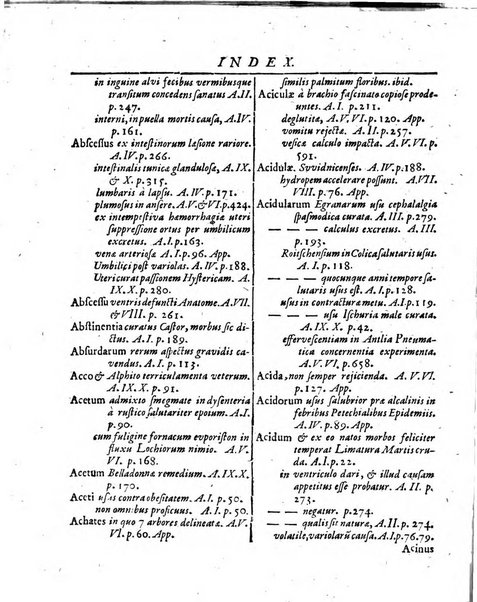 INDEX.
in inguine alvi fecibus vermibusque
transitum concedens sanatus A. II.
p. 247.
interni, in puella mortis causa, A. IV.
p. 161.
Abscessus ex intestinorum læsione rariore.
A. IV. p. 266.
intestinalis tunica glandulosa, A. IX.
& X. p. 315.
lumbaris à lapsu. A. IV. p. 171.
plumosus in ansere. A. V. & VI. p. 424.
ex intempestiva hæmorrhagia uteri
suppressione ortus per umbilicum
excretus. A. I. p. 163.
vena arteriosa A. I. p. 96. App.
Umbilici post variolas. A. IV. p. 188.
Uteri curat passionem Hystericam. A.
IX. X. p. 280.
Abscessu ventris defuncti Anatome. A. VII.
& VIII. p. 261.
Abstinentia curatus Castor, morbus sic di-
ctus. A. I. p. 84.
Absurdarum rerum aspectus gravidis ca-
vendus. A. I. p. 113.
Acco & Alphito terriculamenta veterum.
A. IX. X. p. 91.
Acetum admixto smegmate in dysenteria
à rustico salutariter epotum. A. I.
p. 90.
cum fuligine fornacum evporiston in
fluxu Lochiorum nimio. A. V.
VI. p. 168.
Acetum Belladonnæ remedium. A. IX. X.
p. 170.
Aceti usus contra obesitatem. A. I. p. 50.
non omnibus proficuus. A. I. p. 50.
Achates in quo 7 arbores delineatæ. A. V.
VI. p. 60. App.
similis palmitum floribus. ibid.
Aciculæ à brachio fascinato copiose prode-
untes. A. I. p. 211.
deglutitæ, A. V. VI. p. 120. App.
vomitu rejectæ. A. II. p. 257.
vesicæ calculo impacta. A. V. VI.
p. 591.
Acidulæ Svvidnicenses. A. IV. p. 188.
hydropem accelerare possunt. A. VII.
VIII. p. 76. App.
Acidularum Egranarum usu cephalalgia
spasmodica curata. A. III. p. 279.
— — — calculus excretus. A. I.
p. 193.
Roitschensium in Colica salutaris usus.
A. III. p. 128.
— — — quocunque anni tempore sa-
lutaris usus est. A. I. p. 128.
usus in contractura metu. A. I. p. 119.
— — — usu Ischuria male curata.
A. IX. X. p. 42.
effervescentiam in Antlia Pneuma-
tica concernentia experimenta.
A. V. VI. p. 658.
Acida, non semper rejicienda. A. V. VI.
p. 127. App.
Acidorum usus salubrior præ alcalinis in
febribus Petechialibus Epidemiis.
A. IV. p. 89. App.
Acidum & ex eo natos morbos feliciter
temperat Limatura Martis cru-
da. A. I. p. 22.
in ventriculo dari, & illud causam
appetitus esse probatur. A. II. p.
273.
— — — negatur. p. 274.
— — — qualis sit natura, A. II. p. 274.
volatile, variolarũ causa. A. I. p. 76. 79.
Acinus